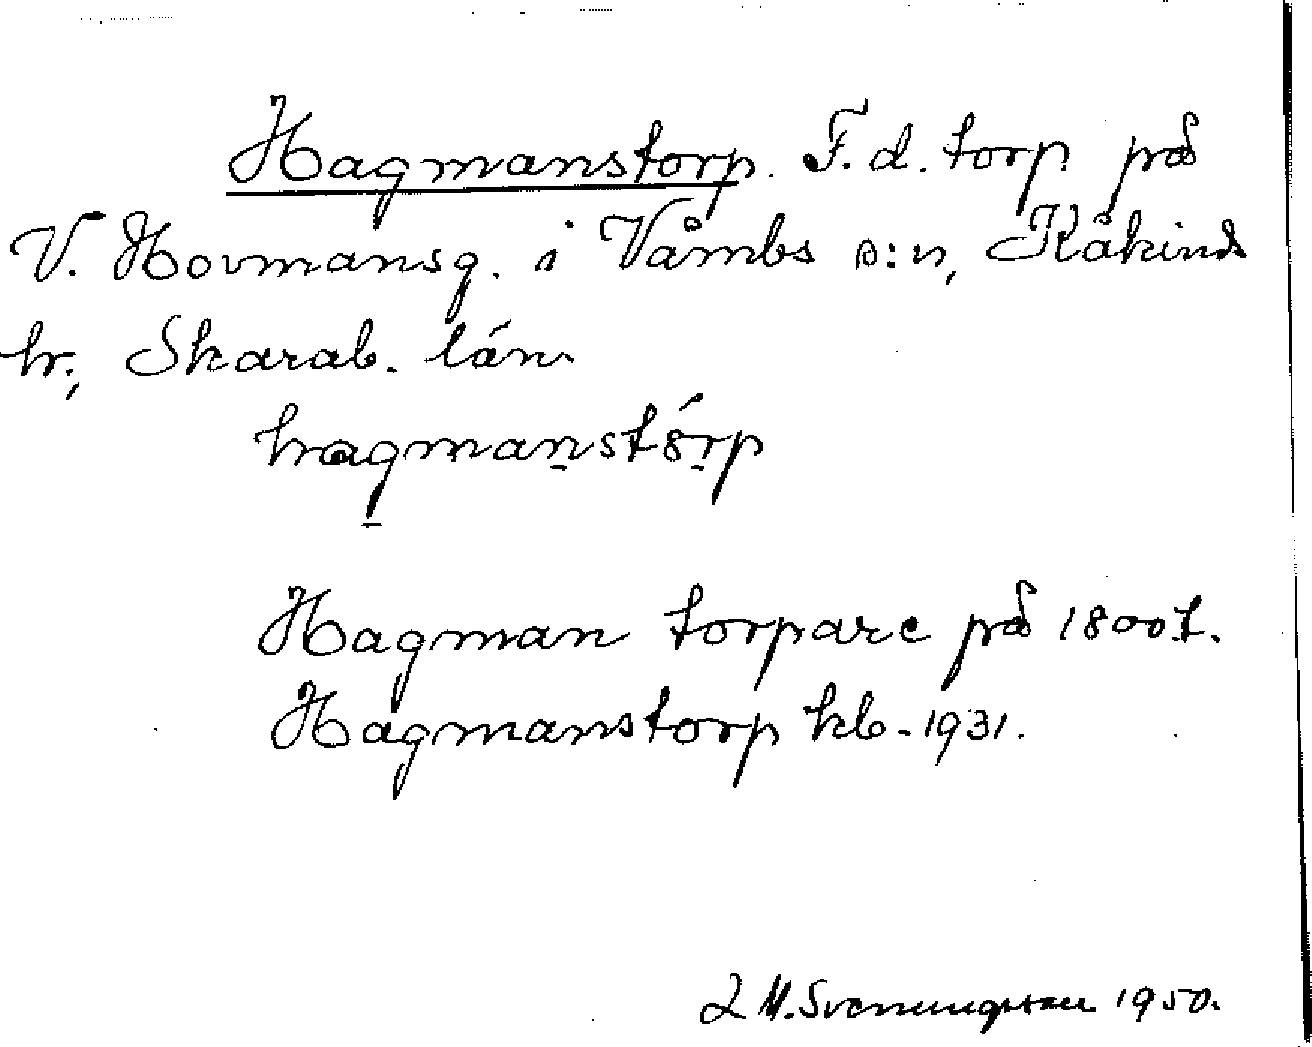 Hagmanstorp. F.d. torp på
V. Hovmansg. i Våmbs s:n, Kåkinds
hr., Skarab. län
hagmanstórp
Hagman torpare på 1800t.
Hagmanstorp kb. 1931.
M. Svenungsson 1950.